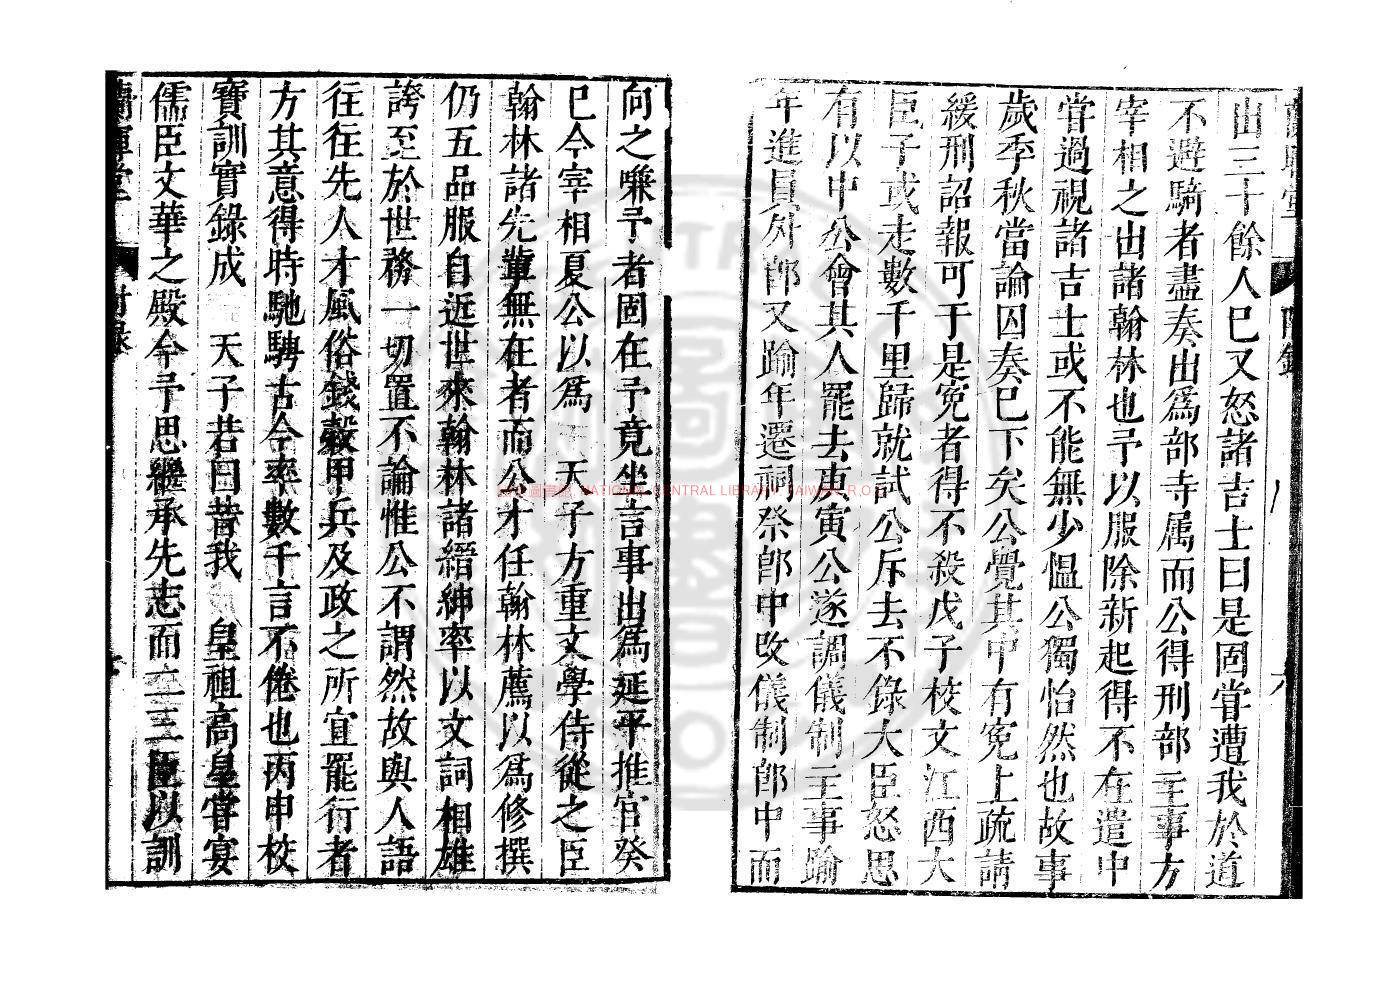 出三十餘人巳又怒諸吉士曰是固嘗遭我於道
不避騎者盡奏出爲部寺属而公得刑部主事方
宰相之出諸翰林也予以服除新起得不在遣中
嘗過視諸吉士或不能無少慍公獨怡然也故事
歲季秋當論囚奏巳下矣公覺其中有寃上疏請
緩刑詔報可于是寃者得不殺戊子校文江西大
臣子或走數千里歸就試公斥去不錄大臣怒思
有以中公會其人罷去庚寅公遂調儀制主事踰
年進員外郎又踰年遷祠祭郎中改儀制郎中而
向之嗛予者固在予竟坐言事出爲延平推官癸
巳今宰相夏公以爲 天子方重文學侍從之臣
翰林諸先軰無在者而公才任翰林薦以爲修撰
仍五品服自近世來翰林諸縉紳率以文詞相雄
誇至於世務一切置不論惟公不謂然故與人語
往往先人才風俗錢穀甲兵及政之所宜罷行者
方其意得時馳騁古今率數千言不倦也丙申校
寶訓實錄成 天子若曰昔我 皇祖高皇嘗宴
儒臣文華之殿今予思繼承先志而二三臣以訓
附錄
NATIONAL CENTRAL LIBRARY, TAIWAN, R.O.C